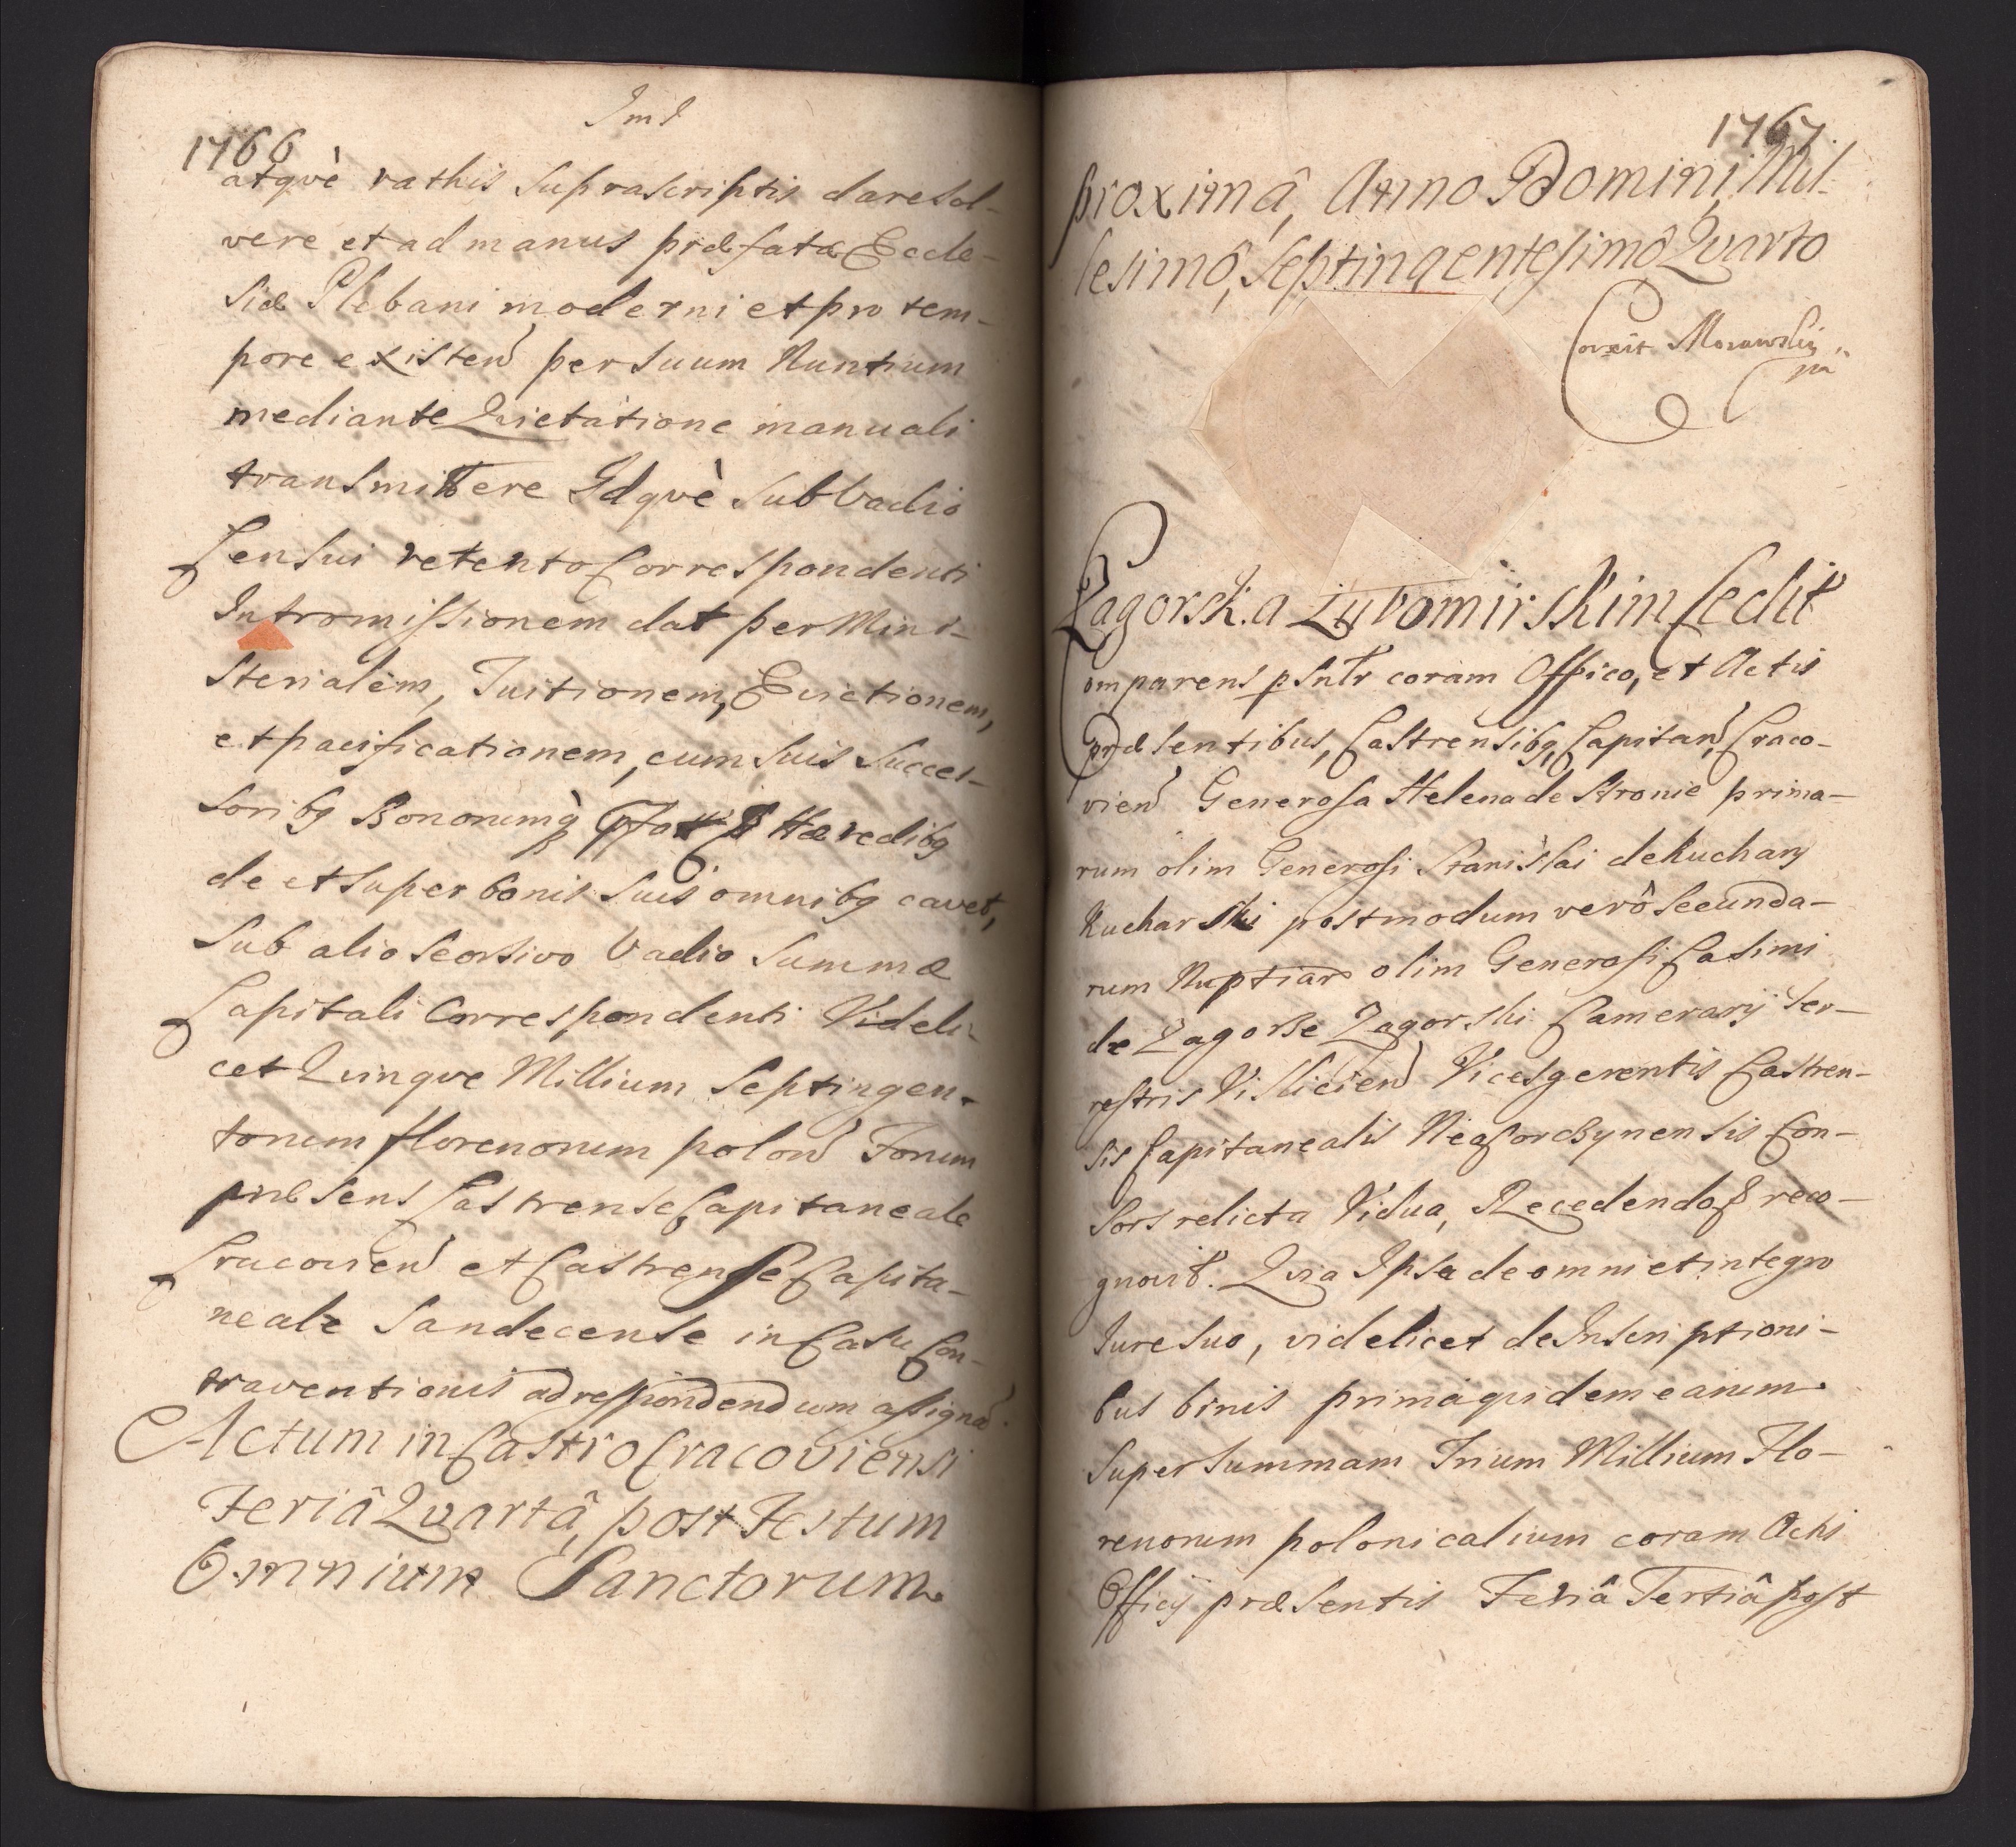 Imd
1766
atqvè rathis Suprascriptis dare Sol-
vere et ad manus præfatæ Eccle-
siæ Plebani moderni et pro tem-
pore existen per Suum Nuntium
mediante Qvietatione manuali
transmittere Idqvè Sub Vadio
Censui retento Correspondenti
Intromissionem dat per Mini-
sterialem, Tuitionem, Evictionem,
et pacificationem, cum Suis Succes-
soribq Bonorumq̀ Hæredibq
de et Super bonis Suis omnibq cavet,
Sub alio Seorsivo Vadio Summæ
Capitali Correspondenti Videli-
cet Qvinqve Millium Septingen-
torum florenorum polon Forum
præsens Castrense Capitaneale
Cracovien et Castrense Capita-
neale Sandecense in Casu Con-
traventionis ad respondendum assignã.
Actum in Castro Cracoviensi
Feriâ Qvartâ, post Festum
Omnium Sanctorum
1767.
proximâ, Anno Domini, Mil-
lesimô, Septingentesimô Qvarto
Corexit Morawski
mp
Zagorska Lubomirskim Cedit
Comparens psntr coram Officio, et Actis
præsentibus, Castrensibq, Capitan, Craco-
vien Generosa Helena de Stronie prima-
rum olim Generosi Stanislai de Kuchary
Kucharski postmodum verô Secunda-
rum Nuptiar olim Generosi Casimi
de Zagorze Zagorski Camerarij Ter-
restris Vislicien Vicesgerentis Castren-
sis Capitanealis Neoforczynensis Con-
sors relicta Vidua, Recedendo & reco-
gnovit. Qvia Ipsa de omni et integro
Iure Suo, videlicet de Inscriptioni-
bus binis primâ qvidem earum
Super Summam Trium Millium Flo-
renorum polonicalium coram Actis
Officij præsentis Feriâ Tertiâ post